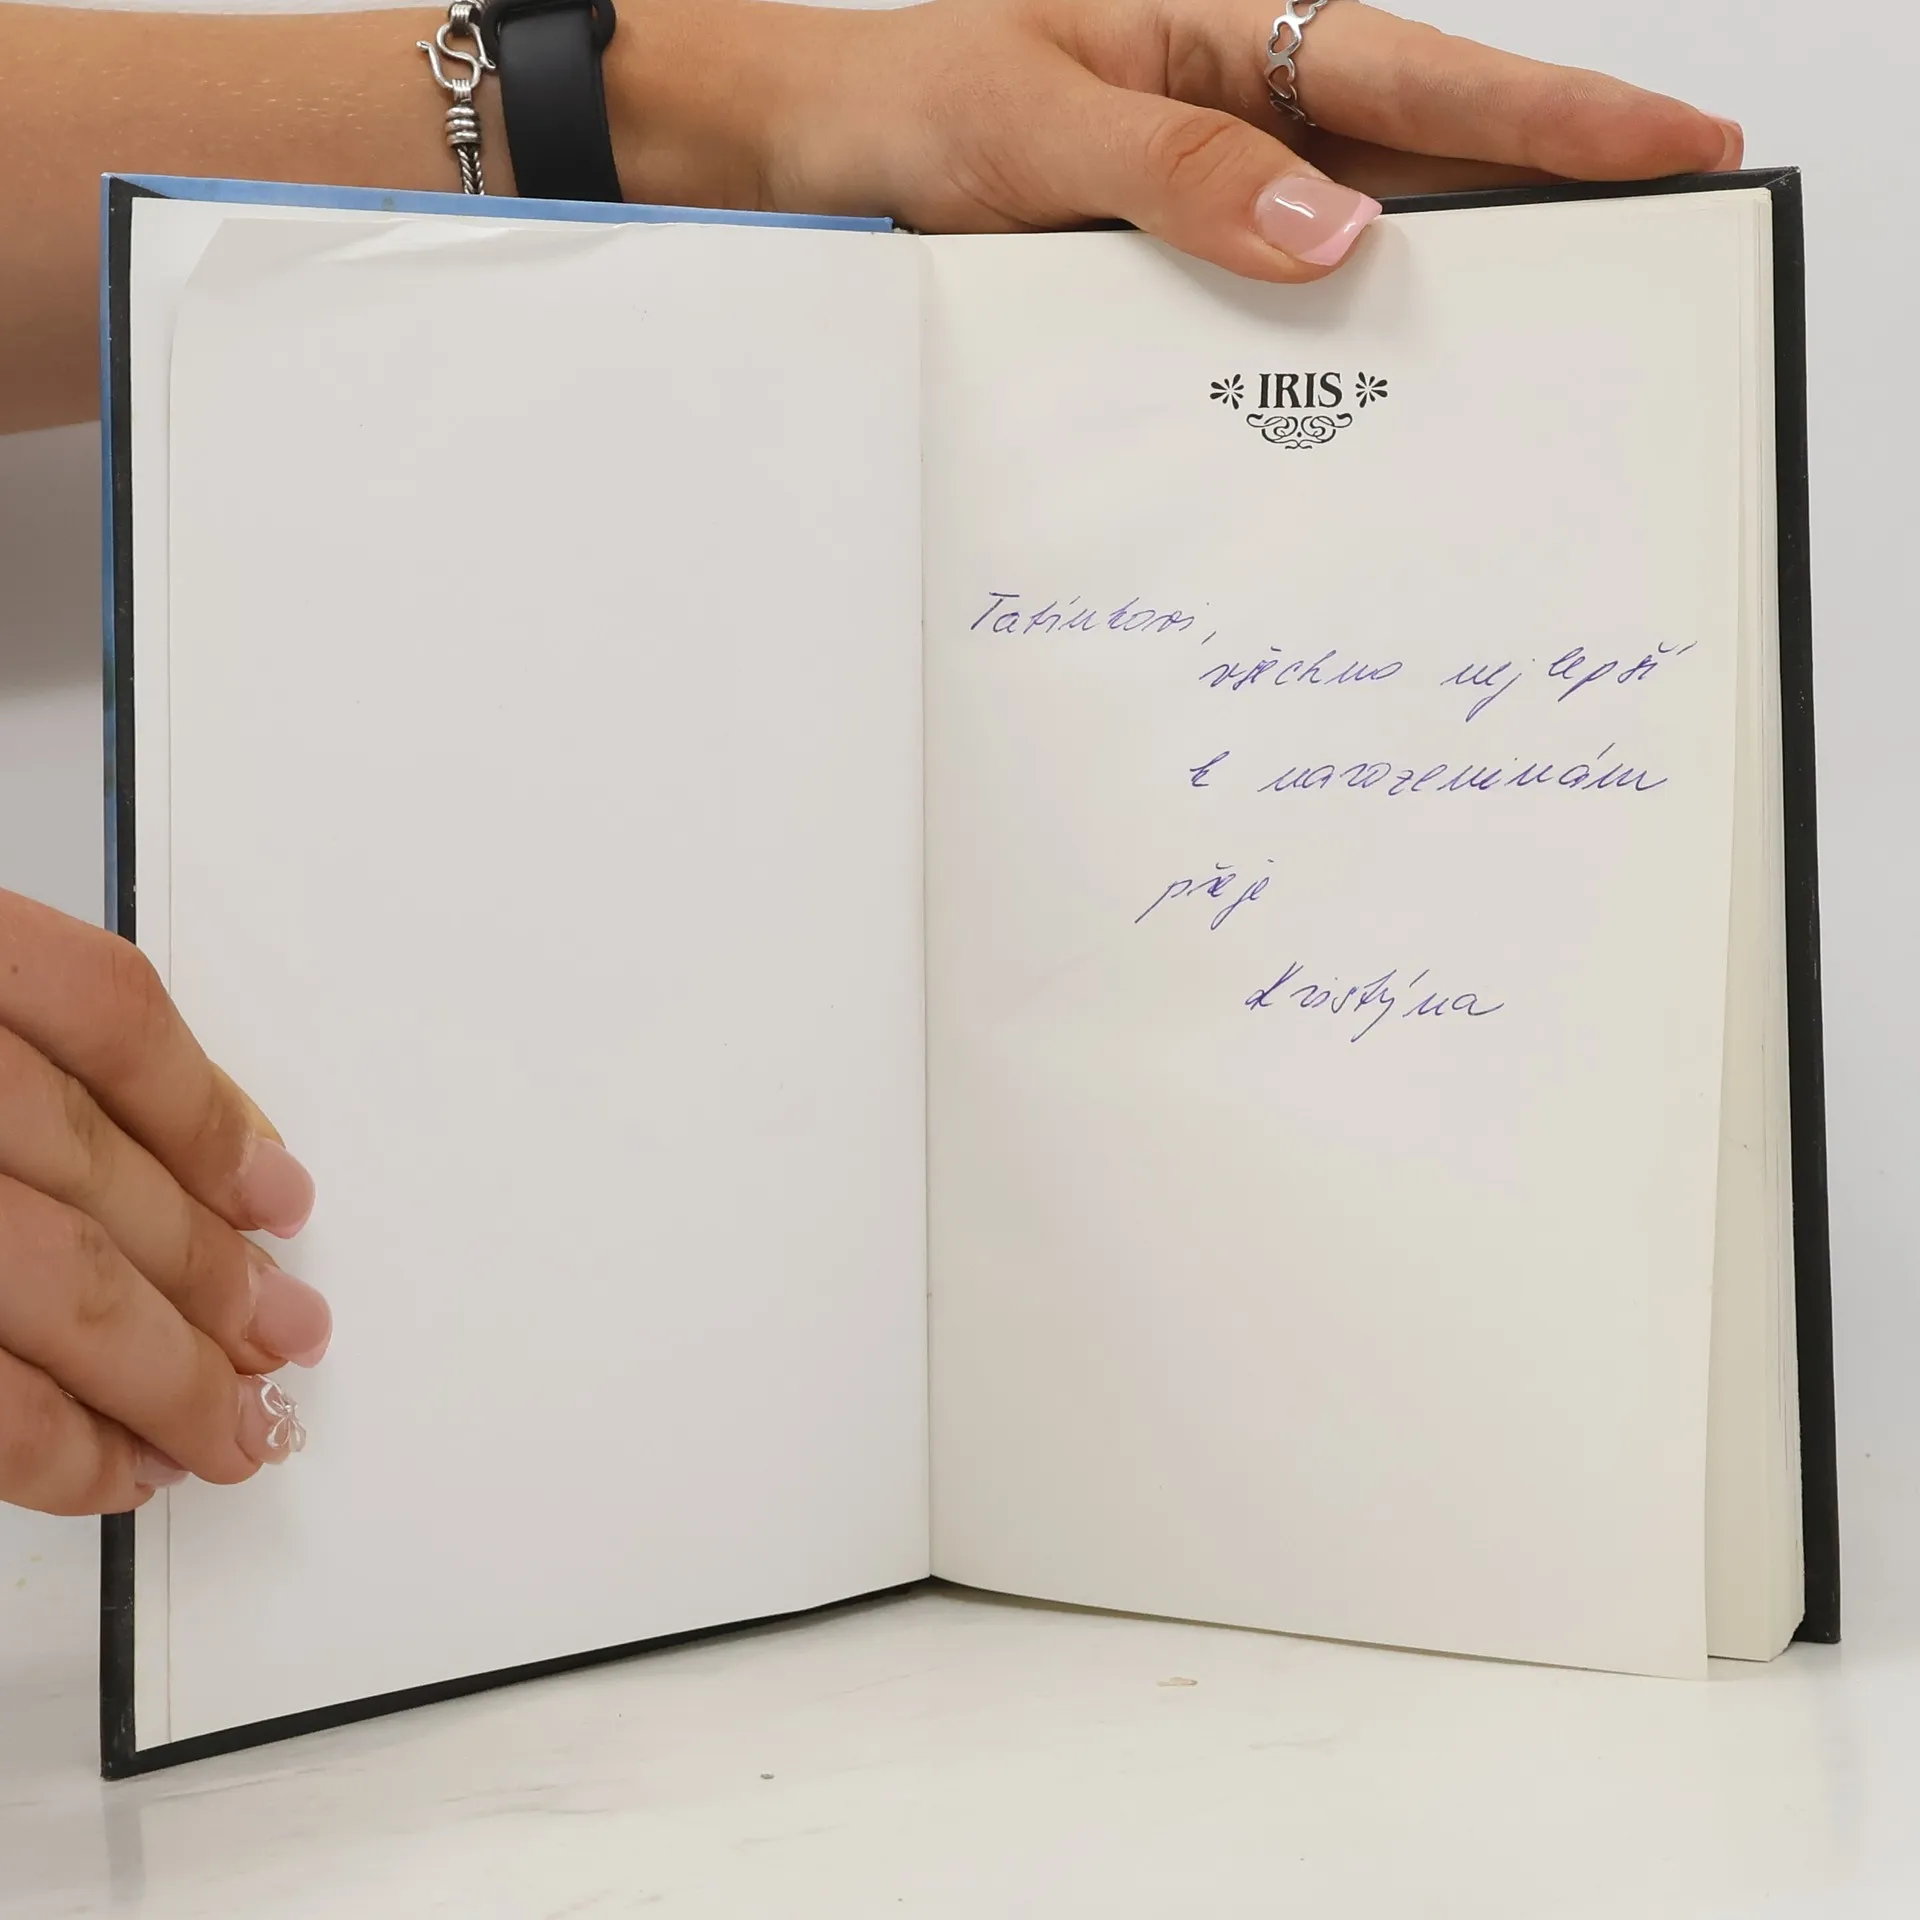 IRIS
Tatínkovi,
všechno nejlepší
k narozeninám
přeje
Kristýna